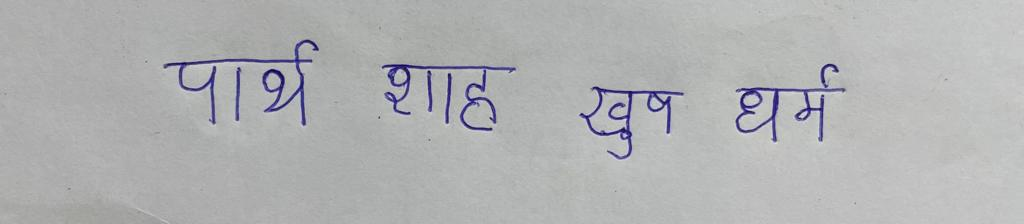 पार्थ शाह खुष धर्म